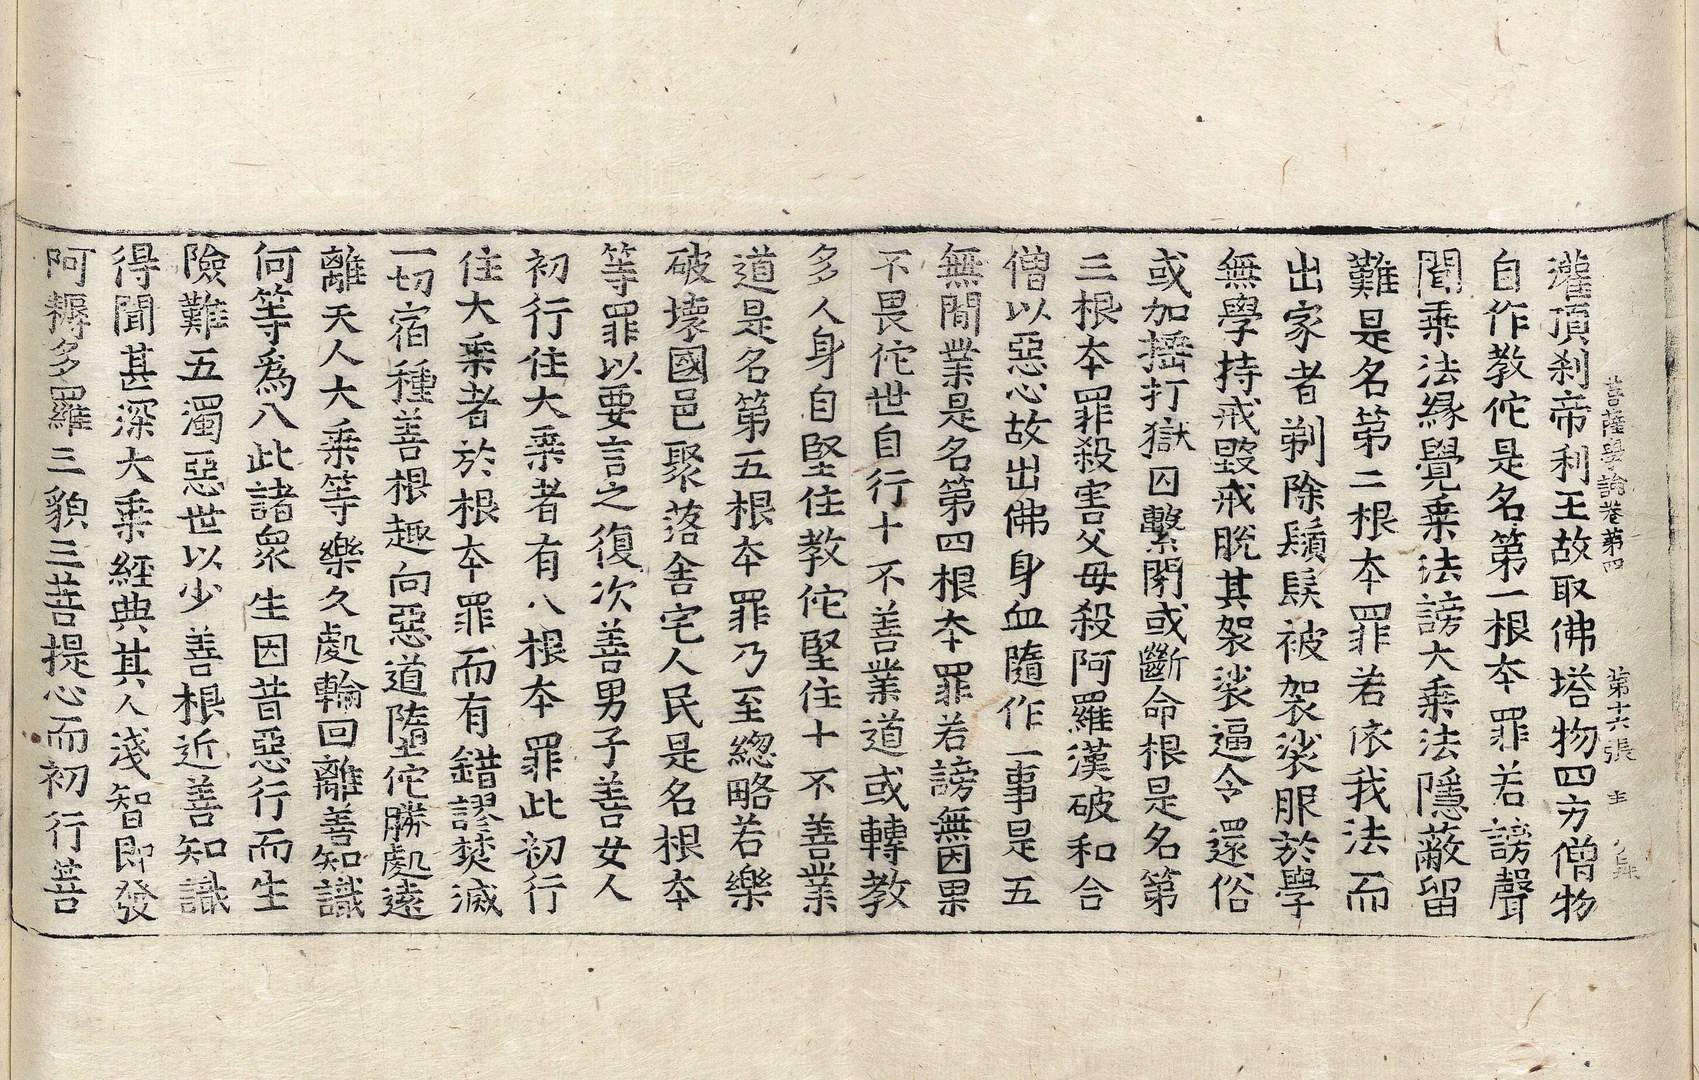 菩薩學論卷第四 第十六張 主
灌頂刹帝利王故取佛塔物四方僧物
自作教佗是名第一根本罪若謗聲
聞乗法緣覺乗法謗大乗法隱蔽留
難是名第二根本罪若依我法而
出家者剃除鬚髮被袈裟服於學
無學持戒毀戒脫其袈裟逼令還俗
或加搖打獄囚繫閉或斷命根是名第
三根本罪殺害父母殺阿羅漢破和合
僧以惡心故出佛身血隨作一事是五
無間業是名第四根本罪若謗無因果
不畏佗世自行十不善業道或轉教
多人身自堅住教佗堅住十不善業
道是名第五根本罪乃至緫略若樂
破壞國邑聚落舍宅人民是名根本
等罪以要言之復次善男子善女人
初行住大乗者有八根本罪此初行
住大乗者於根本罪而有錯謬焚滅
一切宿種善根趣向惡道墮佗勝處遠
離天人大乗等樂久處輪回離善知識
何等為八此諸眾生因昔惡行而生
險難五濁惡世以少善根近善知識
得聞甚深大乗經典其人淺智即發
阿耨多羅三藐三菩提心而初行菩